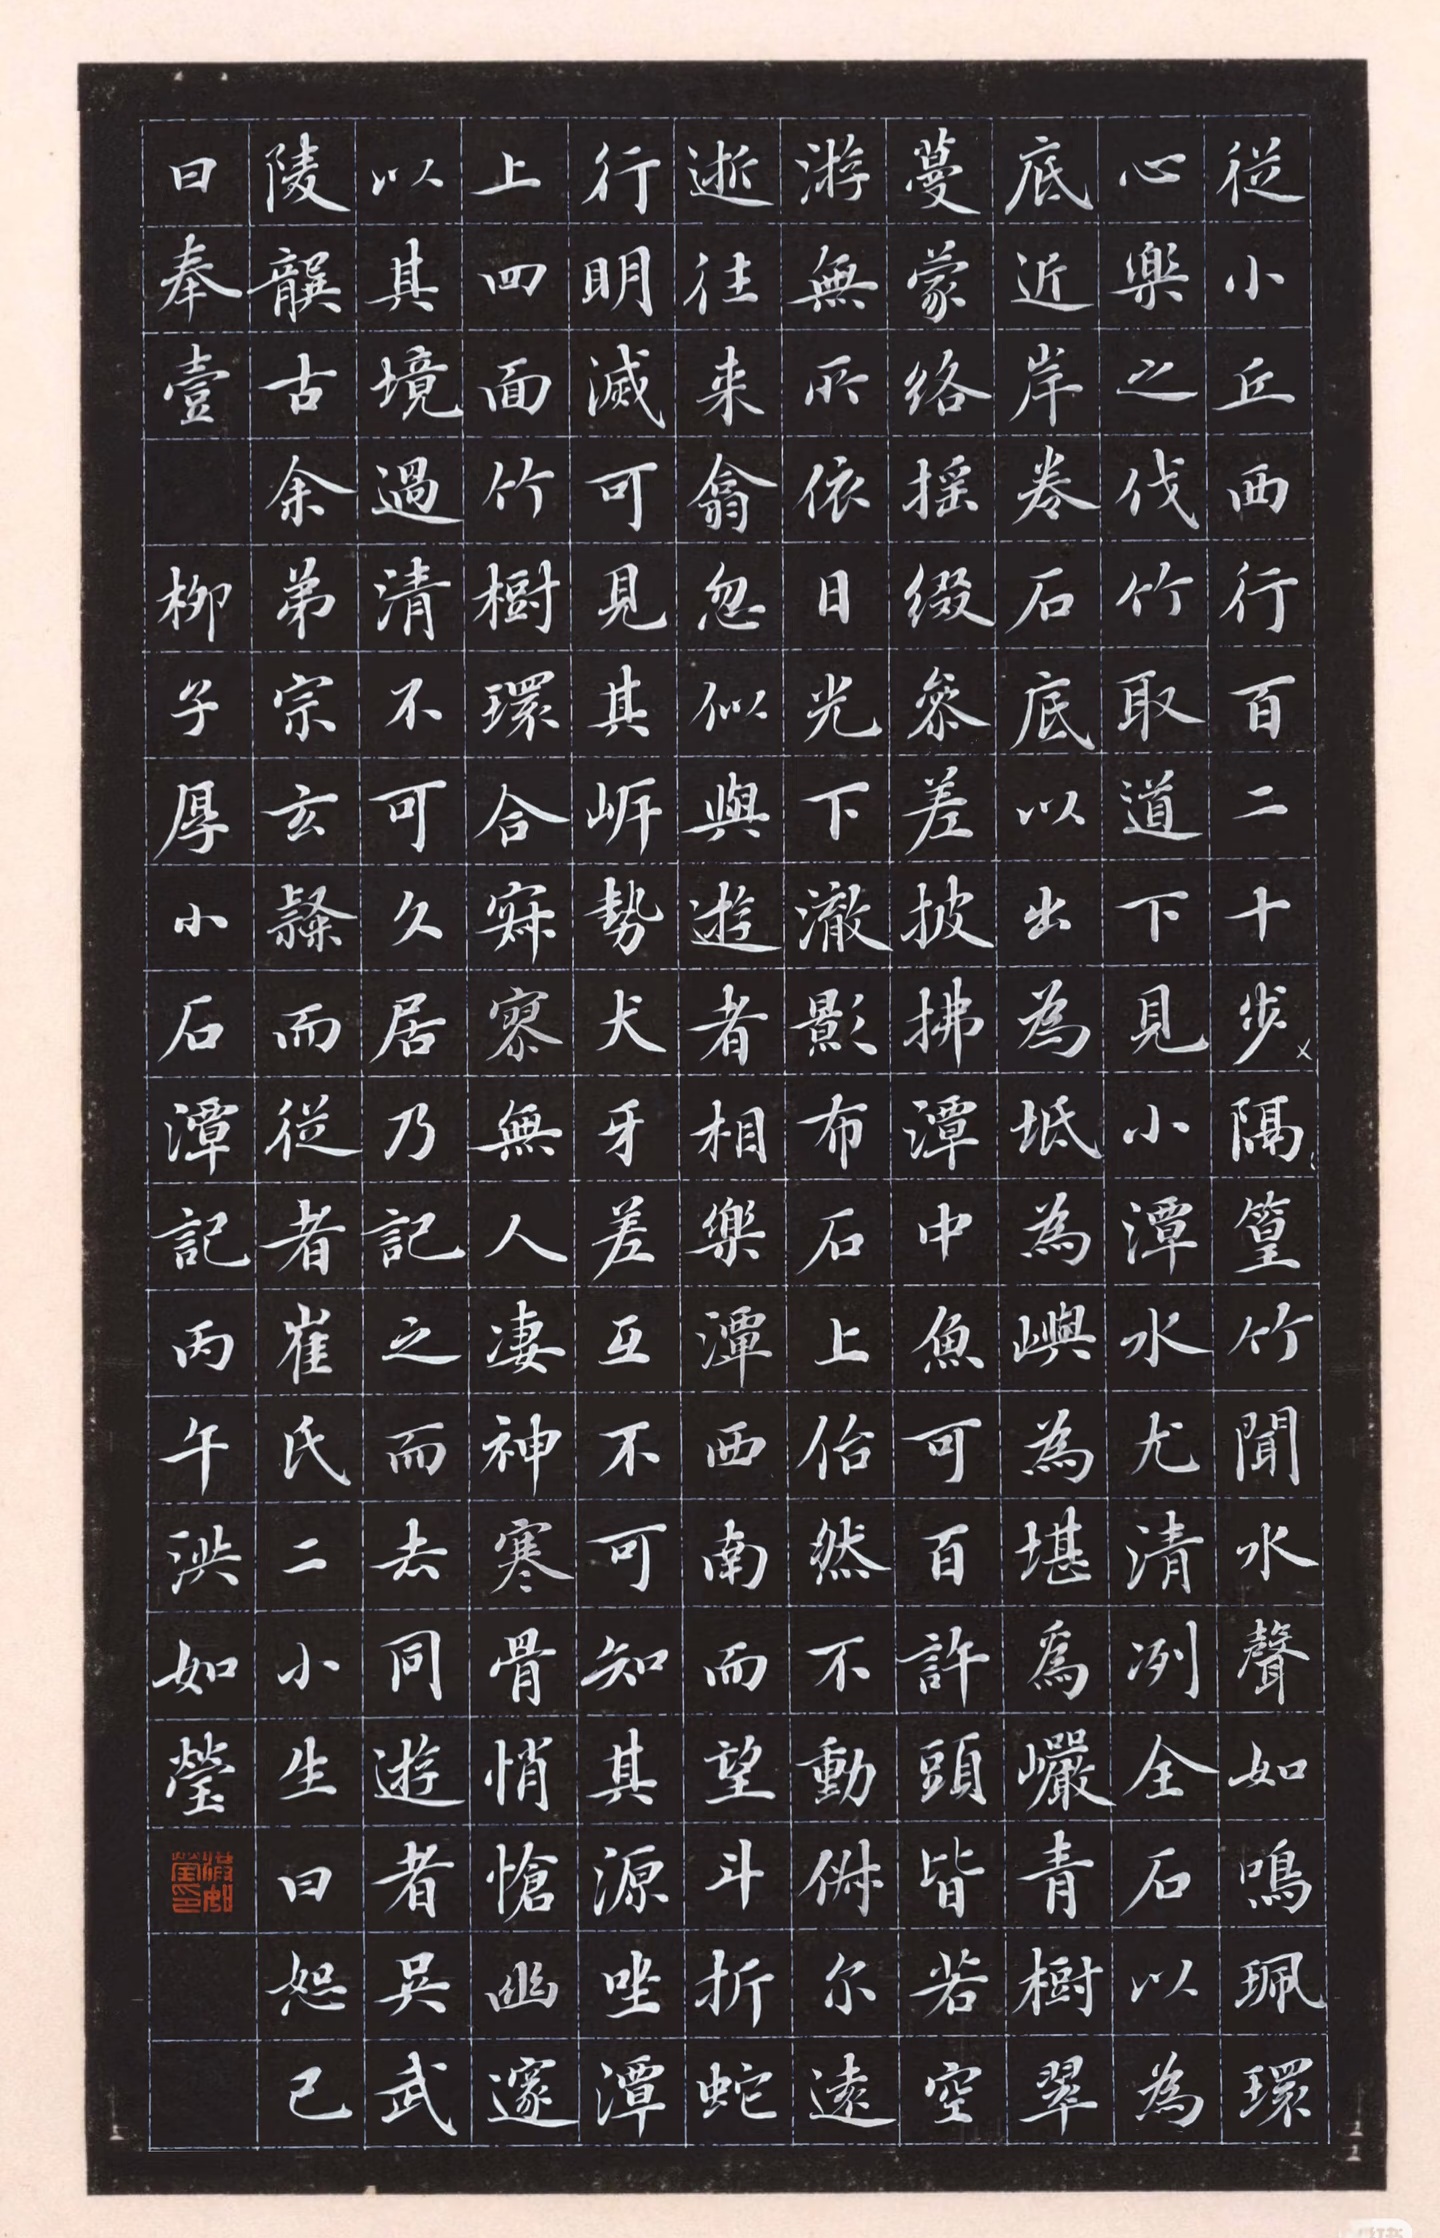 從小丘西行百二十步隔篁竹聞水聲如鳴珮環
心樂之伐竹取道下見小潭水尤清冽全石以為
底近岸卷石底以出為坻為嶼為堪爲巗青樹翠
蔓蒙絡摇綴參差披拂潭中魚可百許頭皆若空
游無所依日光下澈影布石上佁然不動俶尔遠
逝往来翕忽似與遊者相樂潭西南而望斗折蛇
行明滅可見其岸勢犬牙差互不可知其源坐潭
上四面竹樹環合寂寥無人凄神寒骨悄愴幽邃
以其境過清不可久居乃記之而去同遊者吴武
陵龔古余弟宗玄隸而從者崔氏二小生曰恕己
曰奉壹 柳子厚小石潭記丙午洪如瑩
洪如瑩印